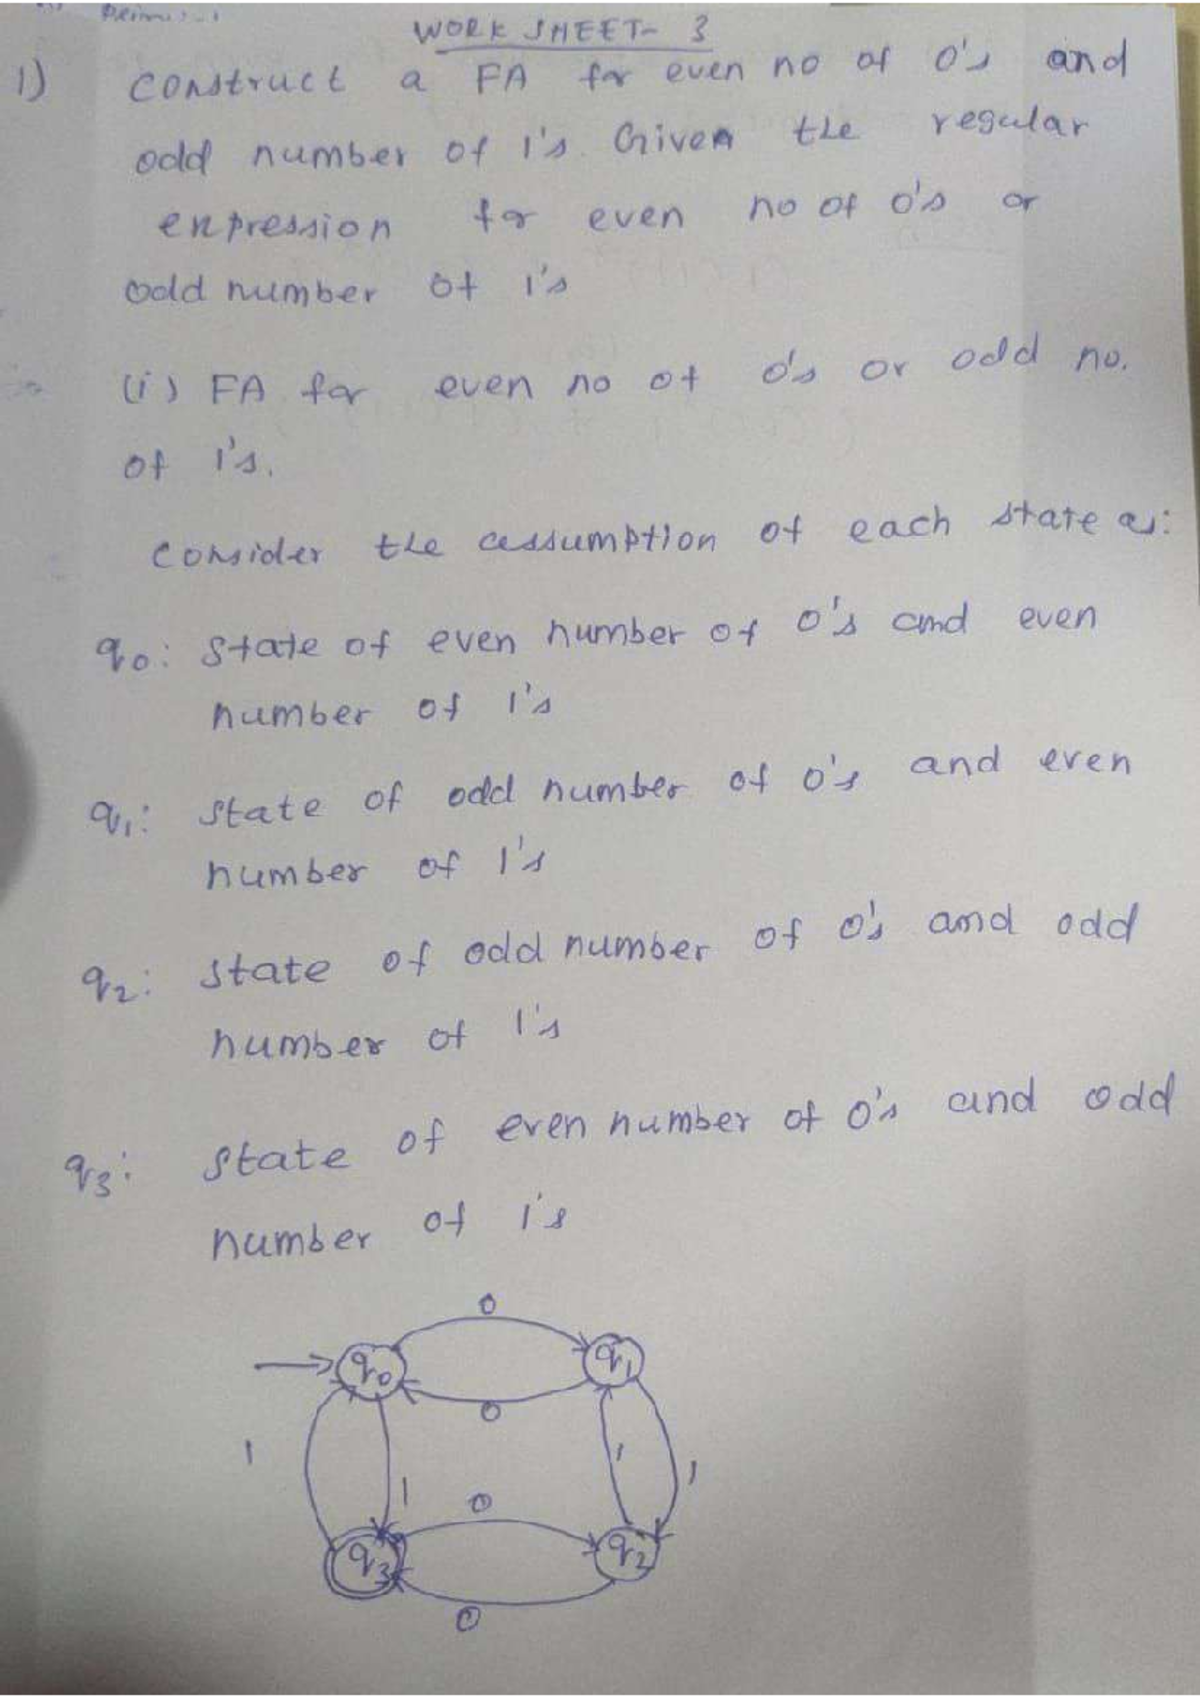 WORK SHEET- 3
1) construct a FA for even no of 0's and
odd number of 1's. Given the regular
expression for even no of 0's or
odd number of 1's
(i) FA for even no of 0's or odd no.
of 1's.
Consider the assumption of each state as:
q0: state of even number of 0's and even
number of 1's
q1: state of odd number of 0's and even
number of 1's
q2: state of odd number of 0's and odd
number of 1's
q3: state of even number of 0's and odd
number of 1's
0
q0 q1
0
1 1 1 1
0
q3 q2
0